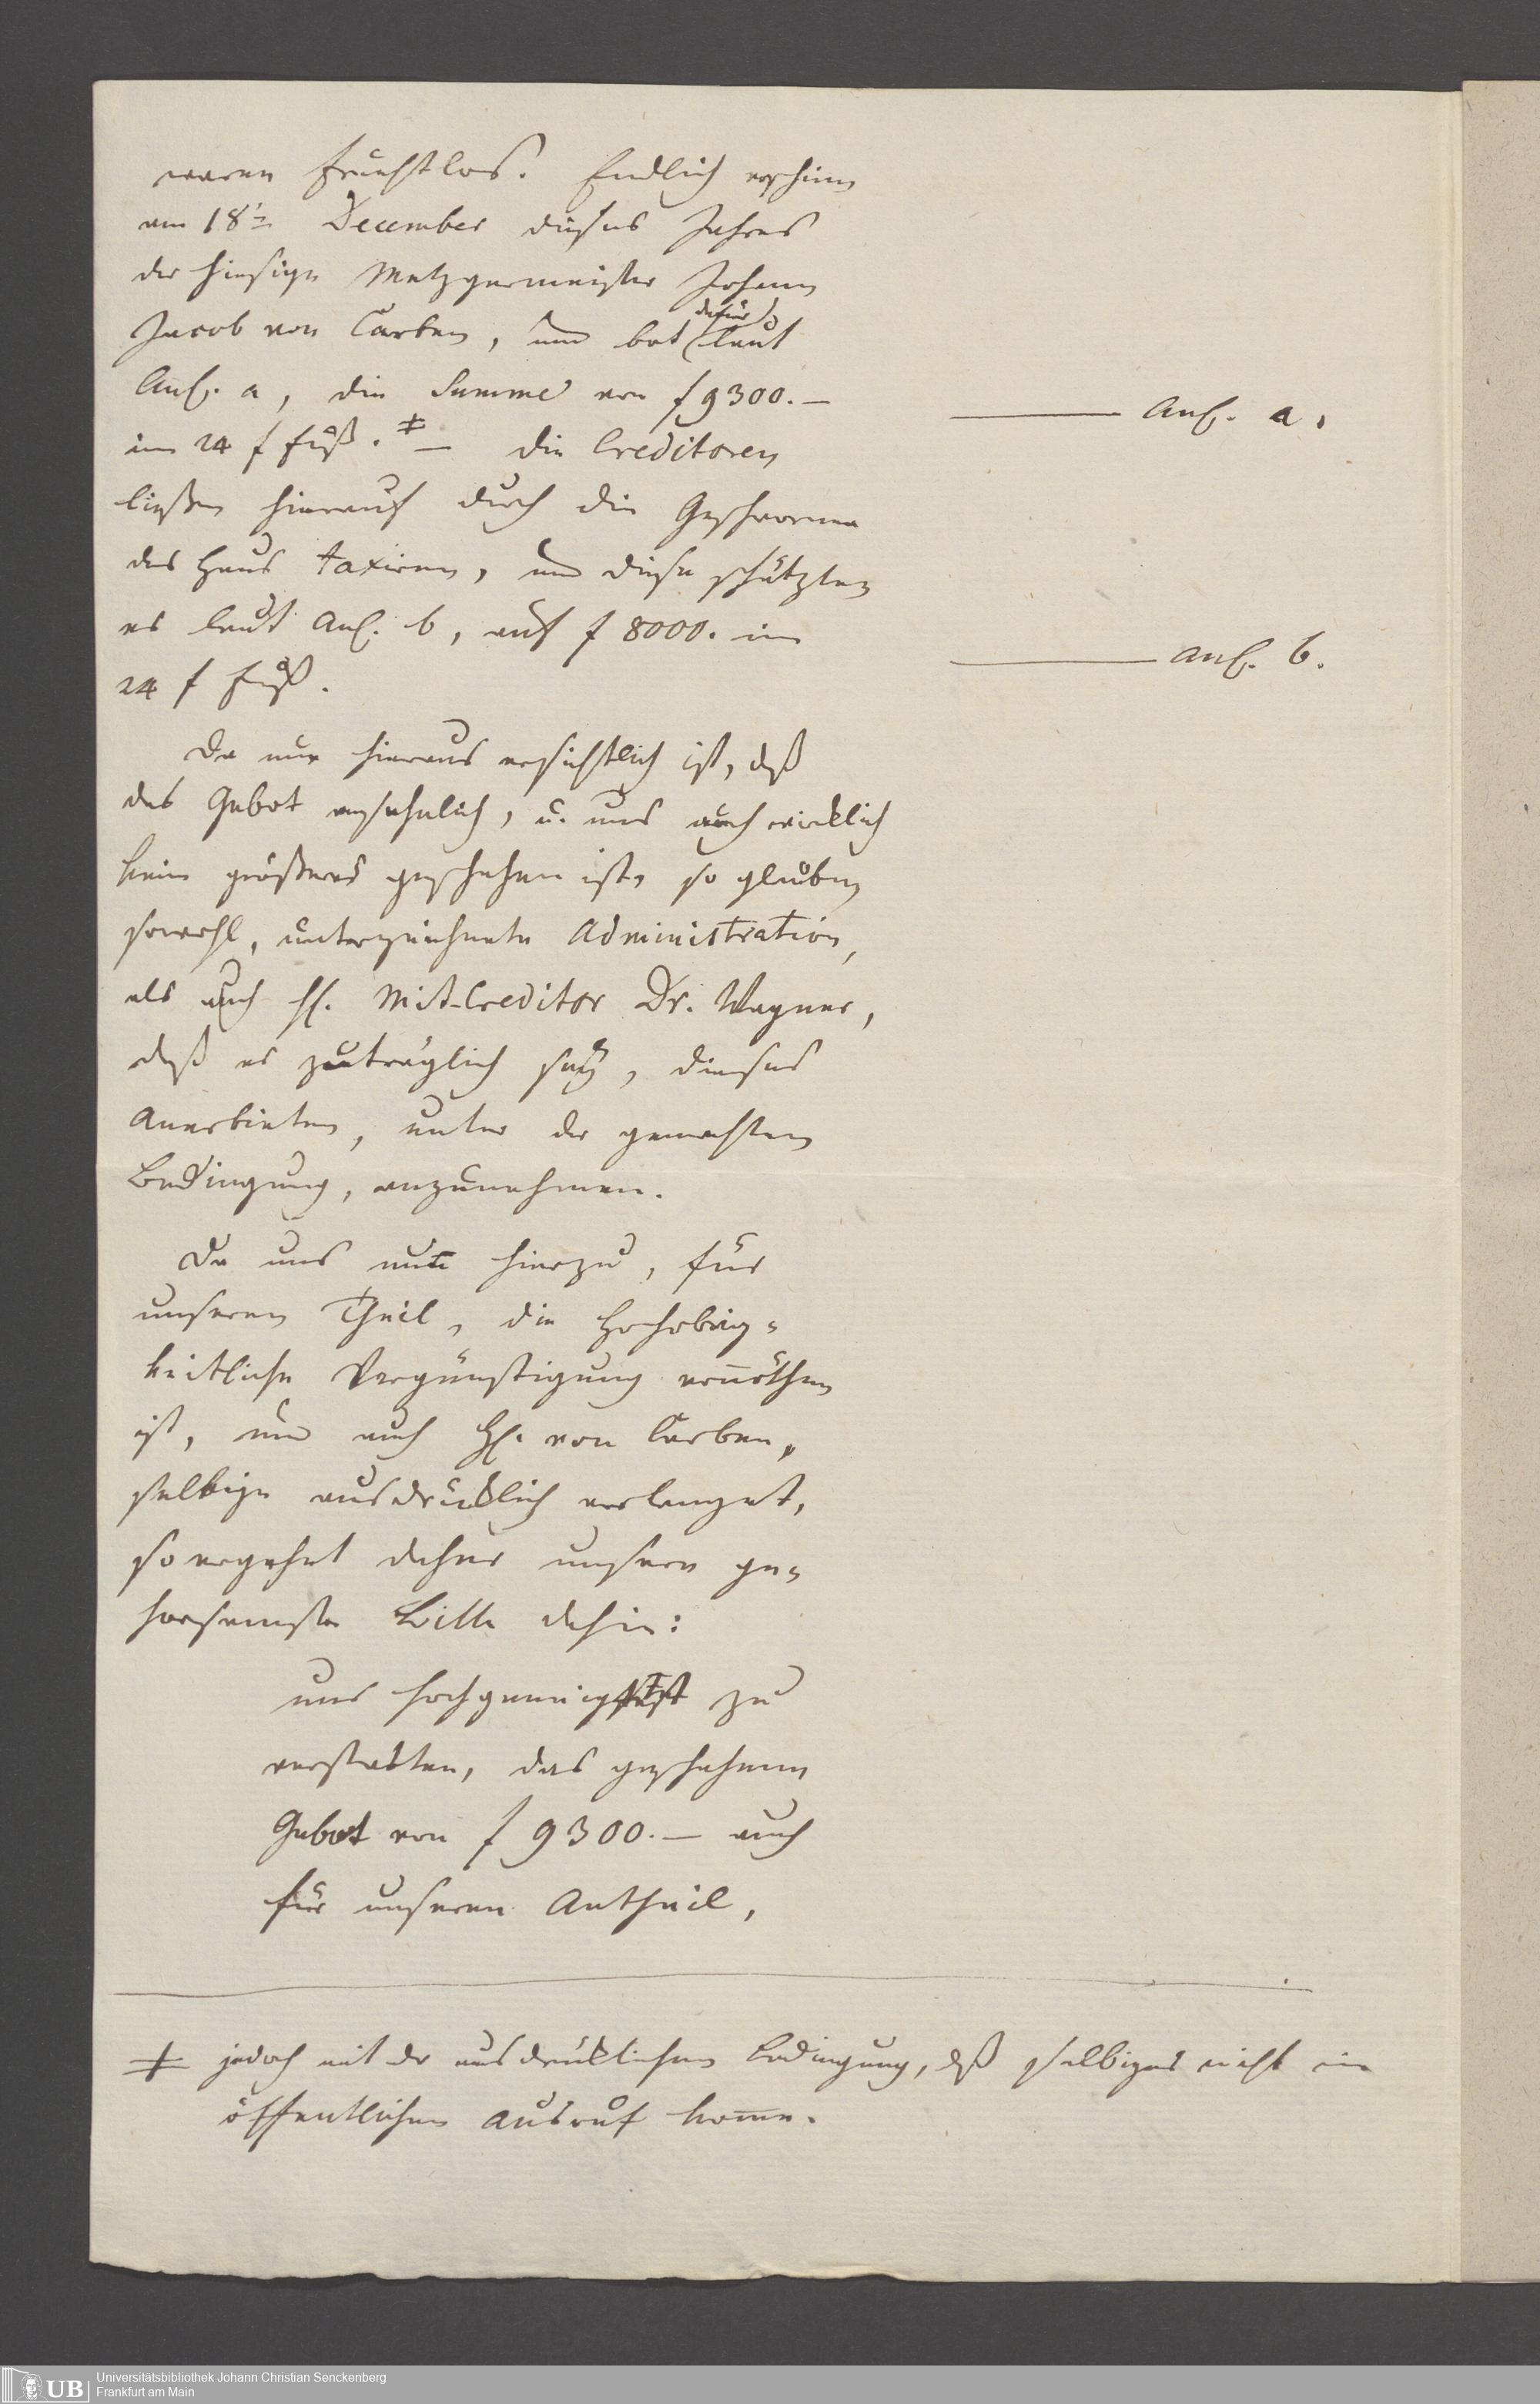 waren fruchtlos. Endlich erschien
am 18ten December dieses Jahres
der hiesige Metzgermeister Johann
Jacob von Carben, und bot dafür laut
Anl. a, die Summe von f 9300.—
im 24 f Fuß. ‡ — Die Creditoren
ließen hierauf durch die Geschworne
das Haus taxiren, und diese schätzten
es laut Anl. b, auf f 8000. im
24 f Fuß.
Anl. a.
Anl. b.
Da nun hieraus ersichtlich ist, daß
das Gebot ansehnlich, u. uns auch wirklich
kein größeres geschehen ist, so glauben
sowohl, unterzeichnete Administration,
als auch H. Mit-Creditor Dr. Wagner,
daß es zuträglich sey, dieses
Anerbieten, unter der gemachten
Bedingung, anzunehmen.
Da uns nun hierzu, für
unseren Theil, die Hochobrig-
keitliche Vergünstigung vonnöthen
ist, und auch H. von Carben,
selbige ausdrücklich verlanget,
so ergehet daher unsere ge-
horsamste Bitte dahin:
uns hochgeneigtest zu
verstatten, das geschehene
Gebot von f 9300.— auch
für unseren Antheil,
‡ jedoch mit der ausdrücklichen Bedingung, daß selbiges nicht in
öffentlichen Ausruf kome.
Universitätsbibliothek Johann Christian Senckenberg
Frankfurt am Main
UB